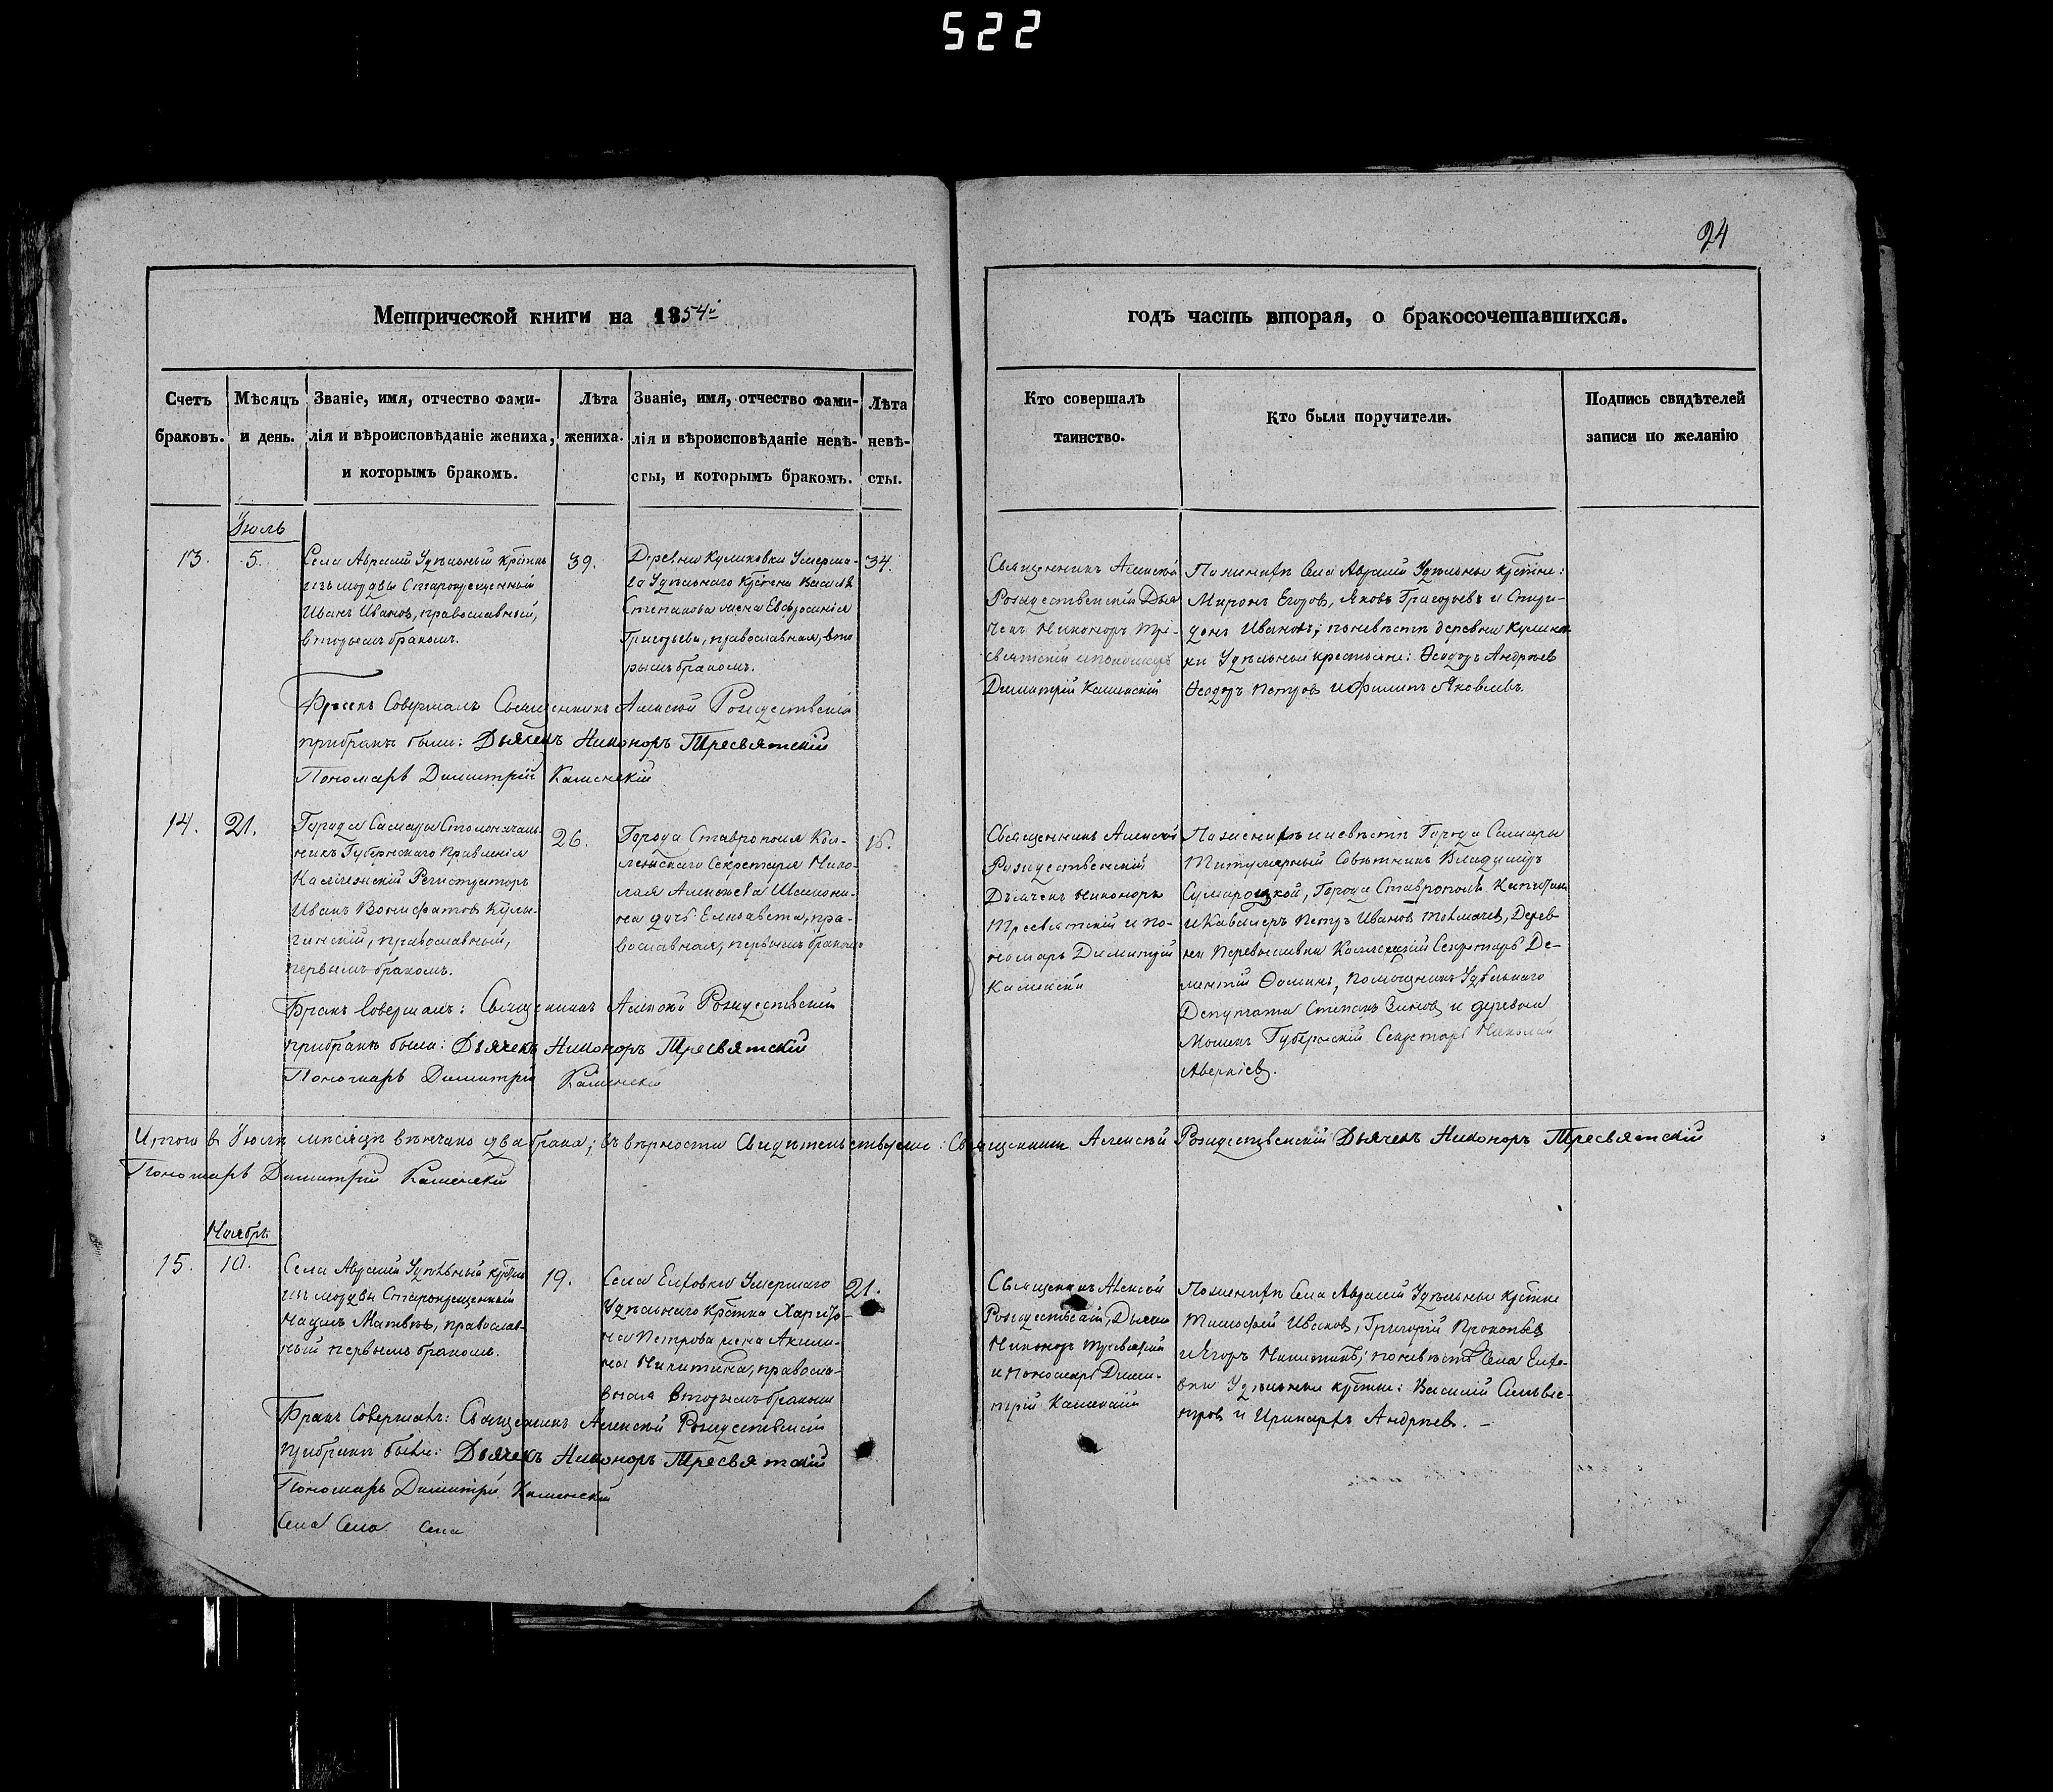 522
24
Метрической книги на 1854й
годъ часть вторая, о бракосочетавшихся.
Счетъ
браковъ.
Мѣсяцъ
и день.
Званіе, имя, отчество фами-
лія и вѣроисповѣданіе жениха,
и которымъ бракомъ.
Лѣта
жениха.
Званіе, имя, отчество фами-
лія и вѣроисповѣданіе невѣ-
сты, и которымъ бракомъ.
Лѣта
невѣ-
сты.
Кто совершалъ
таинство.
Кто были поручители.
Подпись свидѣтелей
записи по желанію
Іюль
13.
5.
Села Авралей Удѣльный
изъ мордвы Старокрещенный
Иванъ Ивановъ, православный,
вторымъ бракомъ.
39.
Деревни Куликовки Умерша-
го Удѣльнаго Василія
Степанова жена Евфросинія
Григорьева, православная, вто
рымъ бракомъ.
34.
Священникъ Алексѣй
Рождественскій Дья
чекъ Никоноръ Три-
святскій и пономарь
Димитрій Каменскій
По женихѣ Села Авралей Удѣльные
Миронъ Егоровъ, Яковъ Григорьевъ и Спири-
донъ Ивановъ; по невѣстѣ деревни Кулико
ки Удѣльные крестьяне: Ѳеодоръ Андреевъ
Ѳеодоръ Петровъ и Филиппъ Яковлевъ.
Бракъ Совершалъ Священникъ Алексѣй Рождественскій
при бракѣ были: Дьячекъ Никоноръ Тресвятскій
Пономарь Димитрій Каменскій
14.
21.
Города Самары Столоначаль
никъ Губернскаго Правленія
Коллежскій Регистраторъ
Иванъ Вонифатовъ Кулы-
гинскій, православный,
первымъ бракомъ.
26.
Города Ставрополя Кол-
лежскаго Секретаря Нико-
лая Алексѣева
дочь Елизавета, пра-
вославная, первымъ бракомъ
16.
Священникъ Алексѣй
Рождественскій
Дьячекъ Никоноръ
Тресвятскій и по-
номарь Димитрій
Каменскій
По женихѣ и невѣстѣ Города Самары
Титулярный Совѣтникъ Владиміръ
Города Ставрополя Капитанъ
и Кавалеръ Петръ Ивановъ Толмачевъ, Дерев
ни Коллежскій Секретарь Де-
ментій Ѳоминъ, Помощникъ Удѣльнаго
Депутата Степанъ Зиновъ и деревни
Губернскій Секретарь Николай
Аверкіевъ.
Бракъ Совершалъ: Священникъ Алексѣй Рождественскій
при бракѣ были: Дьячекъ Никоноръ Тресвятскій
Пономарь Димитрій Каменскій
Итого въ Іюлѣ мѣсяцѣ вѣнчано два брака; въ вѣрности Свидѣтельствуемъ: Священникъ Алексѣй Рождественскій Дьячекъ Никоноръ Тресвятскій
Пономарь Димитрій Каменскій
Ноябрь
15.
10.
Села Авралей Удѣльный
изъ мордвы Старокрещенный
Наумъ Матвѣевъ, православ-
ный первымъ бракомъ.
19.
Села Елховки Умершаго
Удѣльнаго Харито-
на Петрова жена Акили-
на Никитина, правосла-
вная вторымъ бракомъ
21.
Священникъ Алексѣй
Рождественскій, Дьячекъ
Никоноръ Тресвятскій
и пономарь Дими-
трій Каменскій
По женихѣ Села Авралей Удѣльные
Тимофей Ивановъ, Григорій Прокопьевъ
и Егоръ Никитинъ; по невѣстѣ Села Елхо-
вки Удѣльные Василій Сильве-
стровъ и Иринархъ Андреевъ. —
Бракъ Совершалъ: Священникъ Алексѣй Рождественскій
при бракѣ были: Дьячекъ Никоноръ Тресвятскій
Пономарь Димитрій Каменскій
Села Села Села